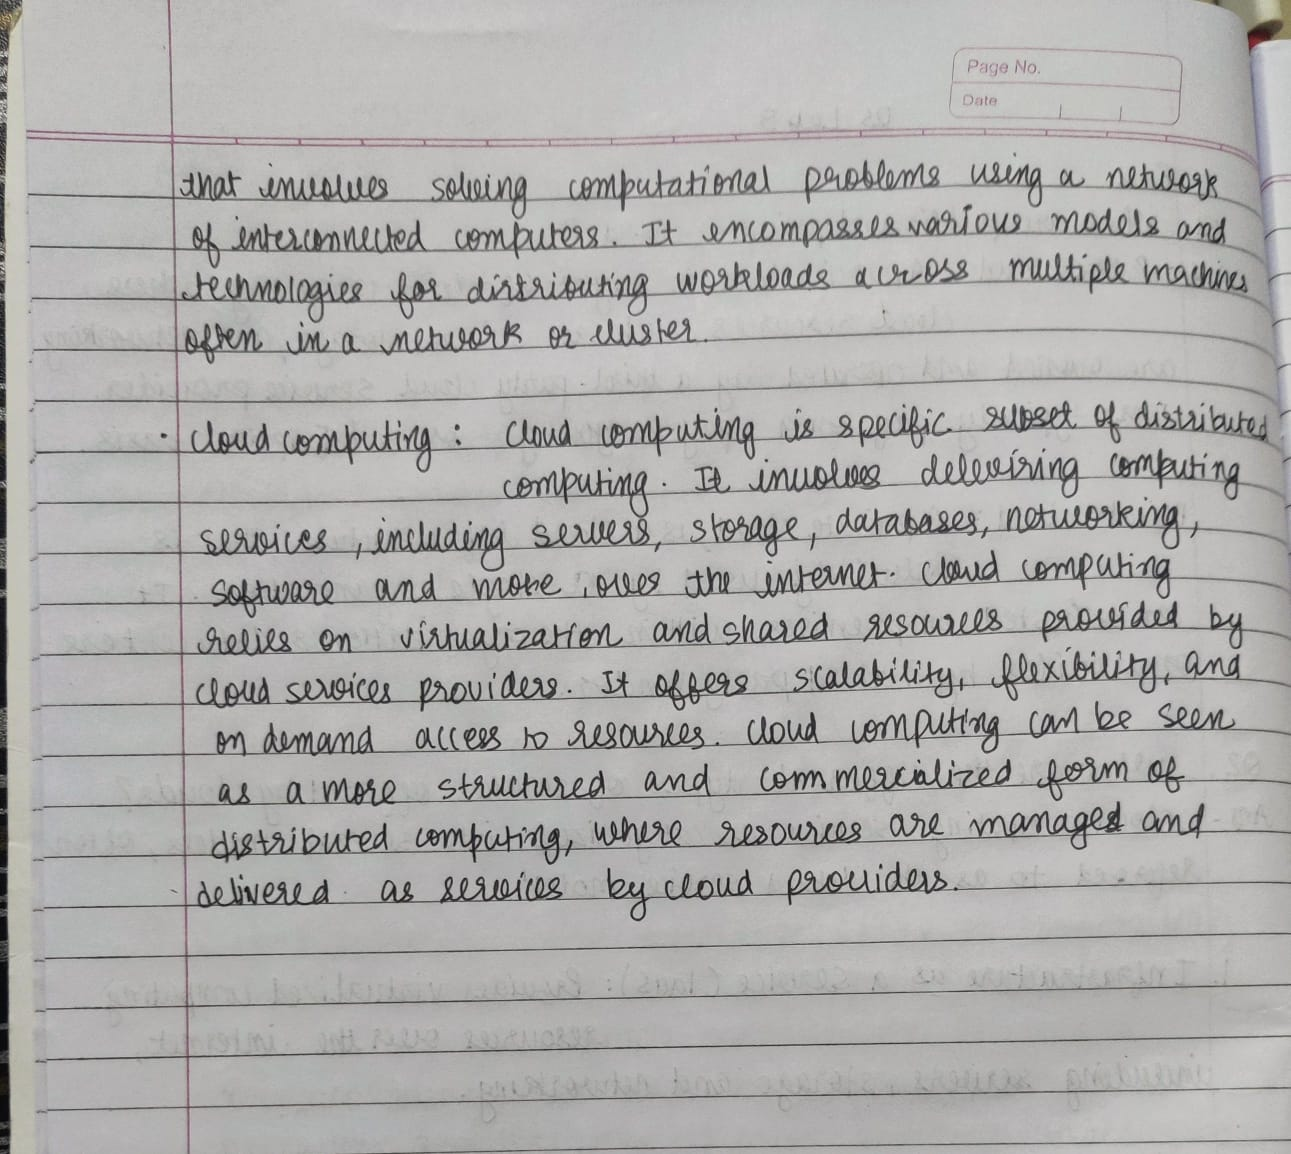 Page No.
Date
that involves solving computational problems using a network
of interconnected computers. It encompasses various models and
technologies for distributing workloads across multiple machines
often in a network or cluster.
· Cloud computing : Cloud computing is specific subset of distributed
computing. It involves deleviring computing
services, including servers, storage, databases, networking,
software and more, over the internet. Cloud computing
relies on virtualization and shared resources provided by
cloud services providers. It offers scalability, flexibility, and
on demand access to resources. Cloud computing can be seen
as a more structured and commercialized form of
distributed computing, where resources are managed and
delivered as services by cloud providers.